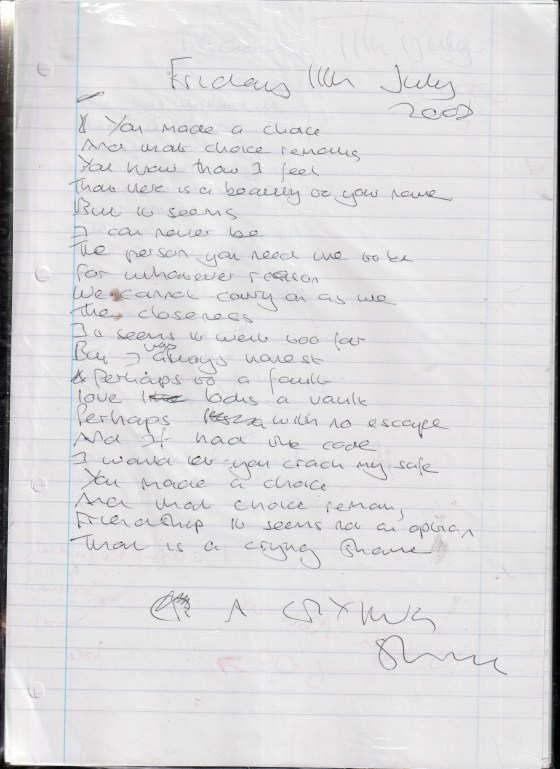 Friday 11th July
2008
You made a choice
And that choice remains
You know that I feel
That there is a beauty to your name
But it seems
I can never be
The person you need me to be
For whatever reason
We cannot carry on as we
The closeness
It seems it went too far
But I was always honest
Perhaps to a fault
Love locks a vault
Perhaps with no escape
And If had the code
I would let you crack my safe
You made a choice
And that choice remains
Friendship it seems not an option
That is a crying shame
A CRYING
Shame